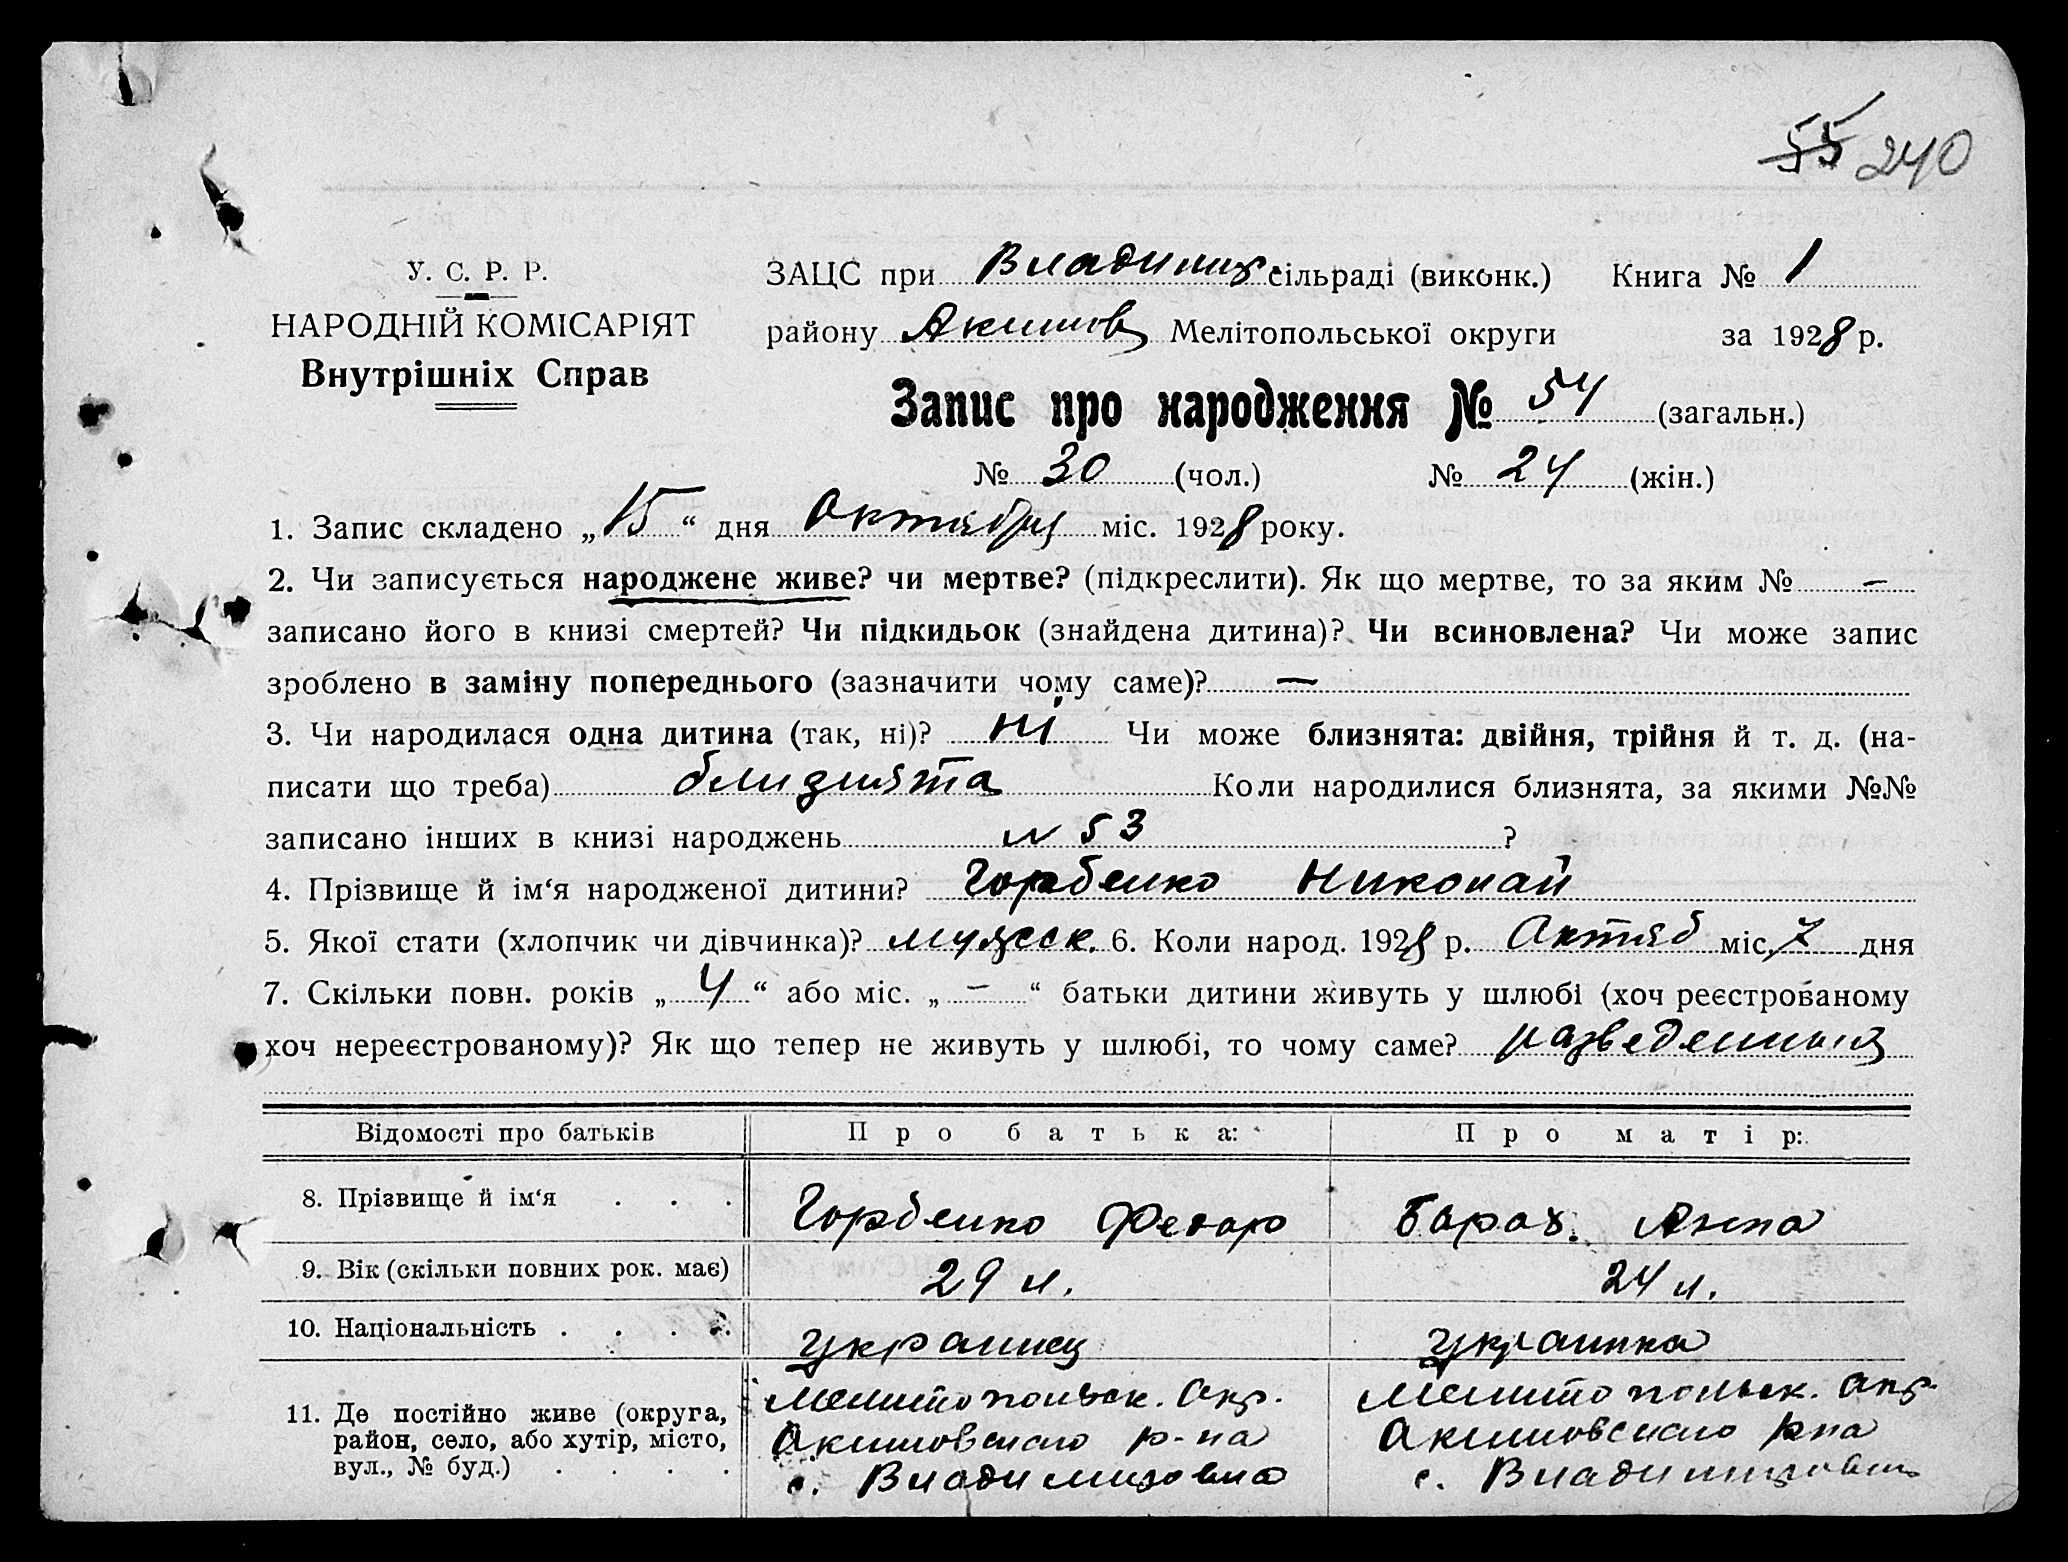 55 240
У. С. Р. Р.
НАРОДНІЙ КОМІСАРІЯТ
Внутрішніх Справ
ЗАЦС при Владимир сільраді (виконк.) Книга № 1
району Акимов Мелітопольської округи за 1928 р.
Запис про народження № 54 (загальн.)
№ 30 (чол.) № 24 (жін.)
1. Запис складено „15“ дня Октября міс. 1928 року.
2. Чи записується народжене живе? чи мертве? (підкреслити). Як що мертве, то за яким № —
записано його в книзі смертей? Чи підкидьок (знайдена дитина)? Чи всиновлена? Чи може запис
зроблено в заміну попереднього (зазначити чому саме)? —
3. Чи народилася одна дитина (так, ні)? ні Чи може близнята: двійня, трійня й т. д. (на-
писати що треба) близнята Коли народилися близнята, за якими №№
записано інших в книзі народжень № 53 ?
4. Прізвище й ім‘я народженої дитини? Горбенко Николай
5. Якої стати (хлопчик чи дівчинка)? мужеск. 6. Коли народ. 1928 р. Октяб міс. 7 дня
7. Скільки повн. років „4“ або міс. „—“ батьки дитини живуть у шлюбі (хоч реєстрованому
хоч нереєстрованому)? Як що тепер не живуть у шлюбі, то чому саме?
Відомості про батьків Про батька: Про матір:
8. Прізвище й ім‘я . . . Горбенко Федор Барах. Анна
9. Вік (скільки повних рок. має) 29 л. 24 л.
10. Національність . . . . украинец украинка
11. Де постійно живе (округа, район, село, або хутір, місто, вул., № буд.) . . . .
Мелитопольск. Окр.
Акимовского р-на
с. Владимировка
Мелитопольск. окр.
Акимовского рна
с. Владимировка